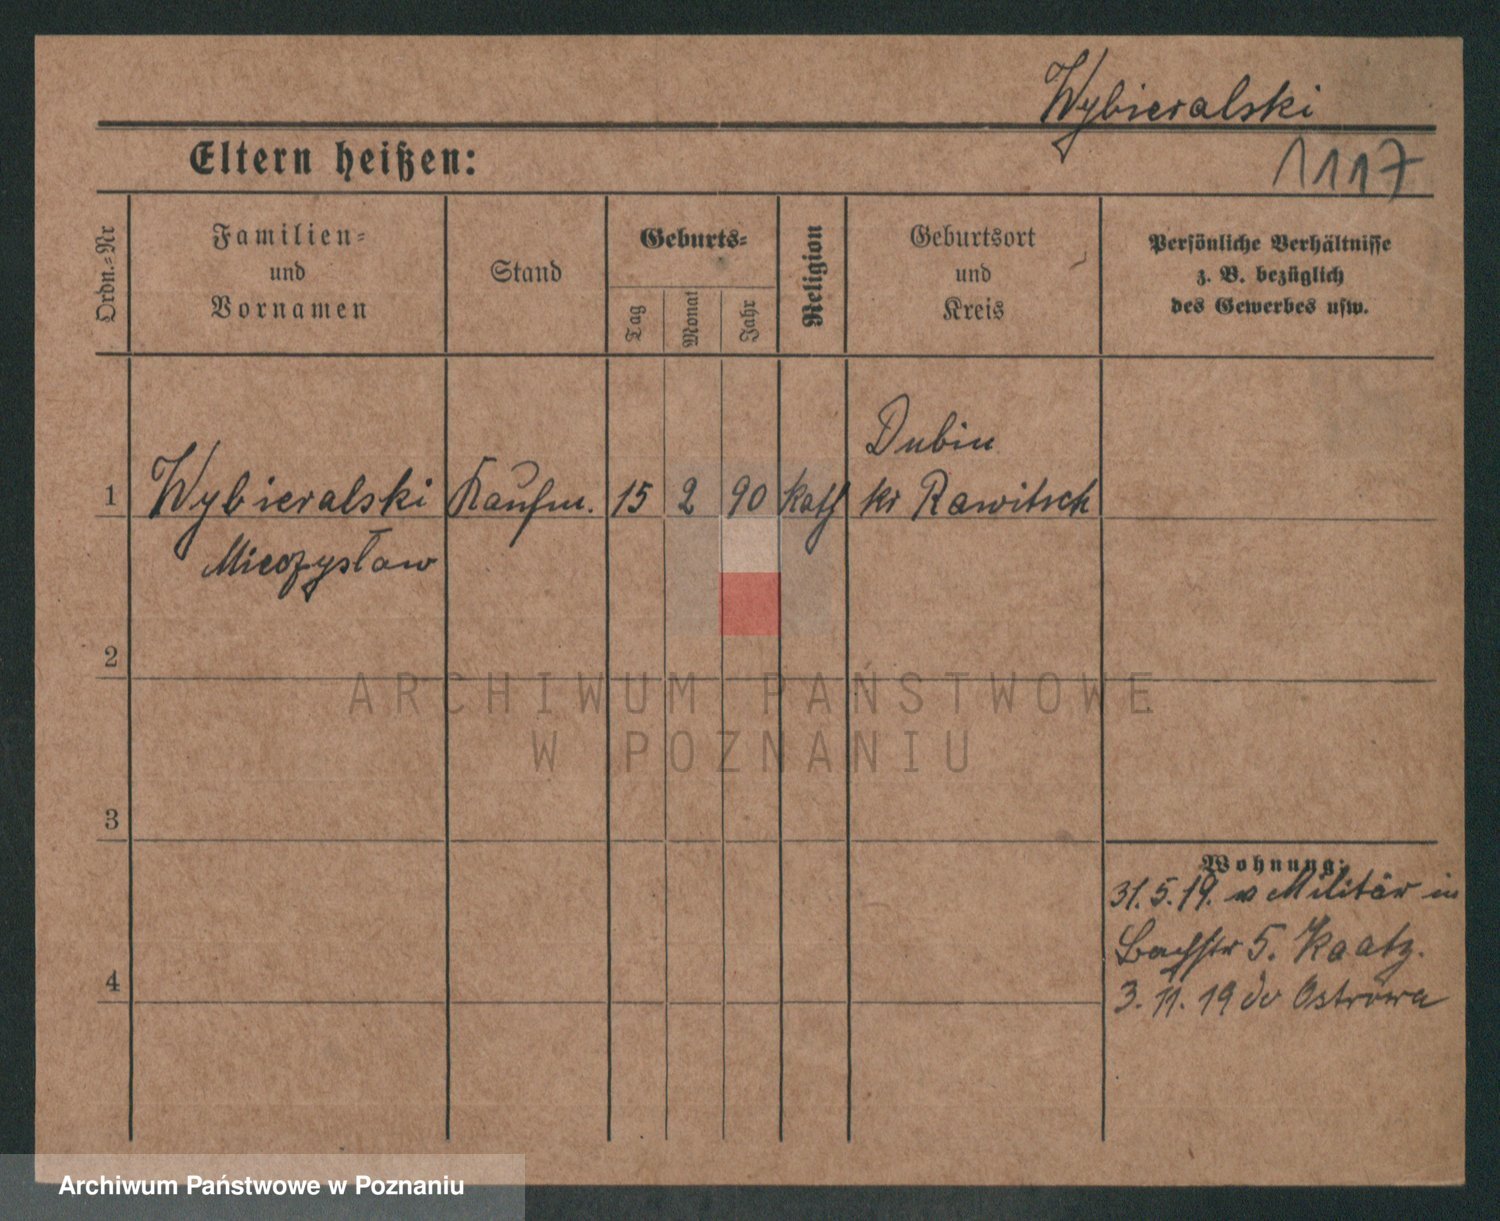 Wybieralski
Eltern heißen:
1117
Ordn.-Nr
Familien-
und
Vornamen
Stand
Geburts-
Tag
Monat
Jahr
Religion
Geburtsort
und
Kreis
Persönliche Verhältnisse
z. B. bezüglich
des Gewerbes usw.
1
Wybieralski
Mieczysław
Kaufm.
15
2
90
kath
Dubin
Kr Rawitsch
2
3
4
Wohnung:
31.5.19. v Militär in
Bachstr 5. Kaatz.
3.11.19 do Ostrowa
ARCHIWUM PAŃSTWOWE
W POZNANIU
Archiwum Państwowe w Poznaniu